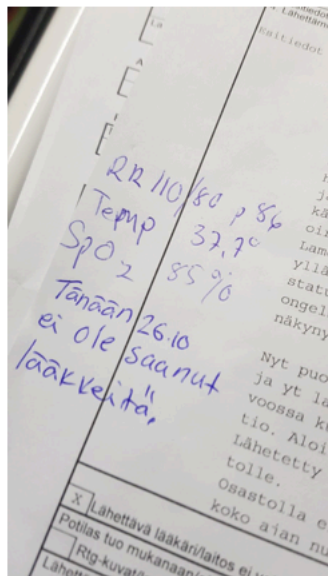 Lähettäm
Esitiedot
La
A
RR 110/80 p 86
Temp 37,7°
SpO2 85%
Tänään 26.10
ei ole saanut
lääkkeitä.
yllä
statu
ongel
näkyny
Nyt puo
ja yt la
voossa k
tio. Aloi
Lähetetty
tolle.
Osastolla e
koko ajan nu
X Lähettävä lääkäri/laitos ei v
Potilas tuo mukanaan
Rtg-kuvat
Lähett